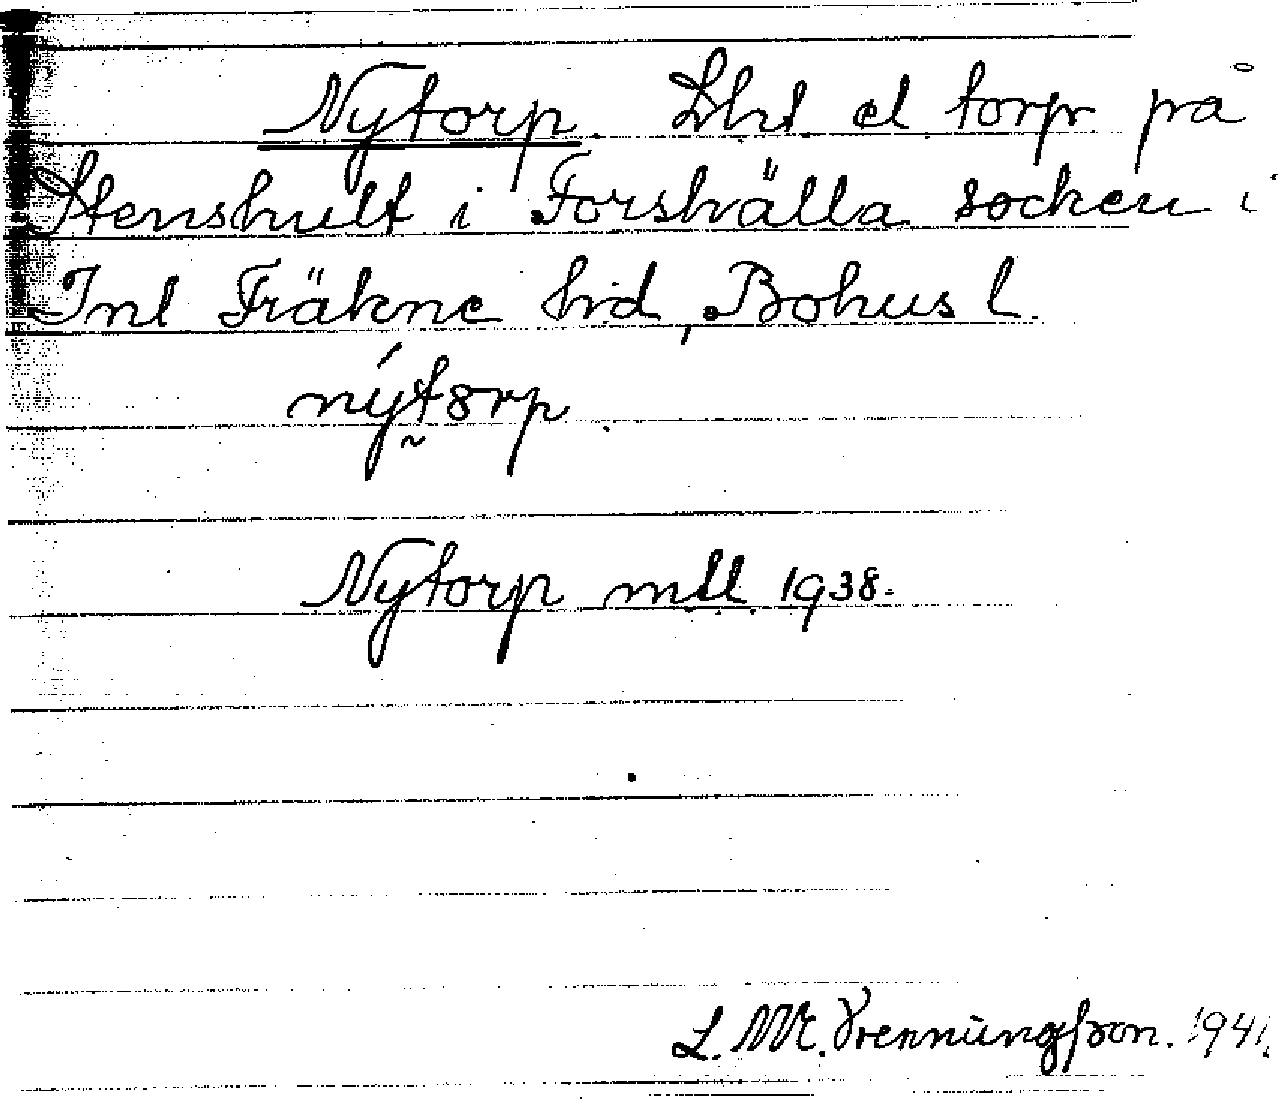 Nytorp. Lht el torp på
Stenshult i Forshälla socken i
Inl Fräkne hd, Bohus l.
nýtorp
Nytorp mtl 1938.
L. M. Vrenningsson. 1941.